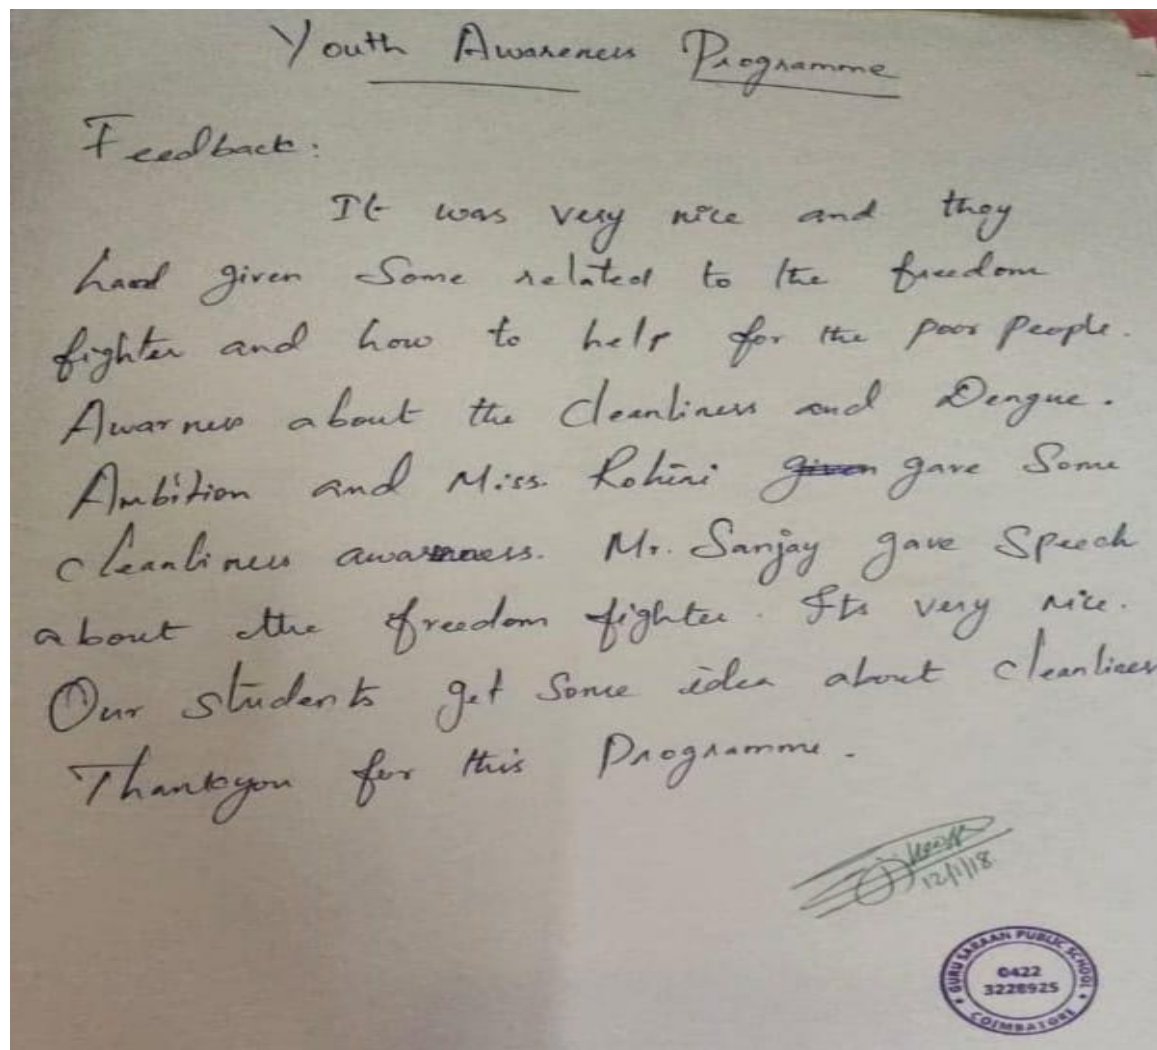 Youth Awareness Programme
Feedback:
It was very nice and they
had given Some related to the freedom
fighter and how to help for the poor People.
Awarness about the Cleanliness and Dengue.
Ambition and Miss. Rohini given gave Some
cleanliness awarness. Mr. Sanjay gave Speech
about the freedom fighter. Its very nice.
Our students get Some idea about cleanliness
Thankyou for this Programme.
12/1/18
GURU SARAAN PUBLIC SCHOOL
0422
3228925
COIMBATORE